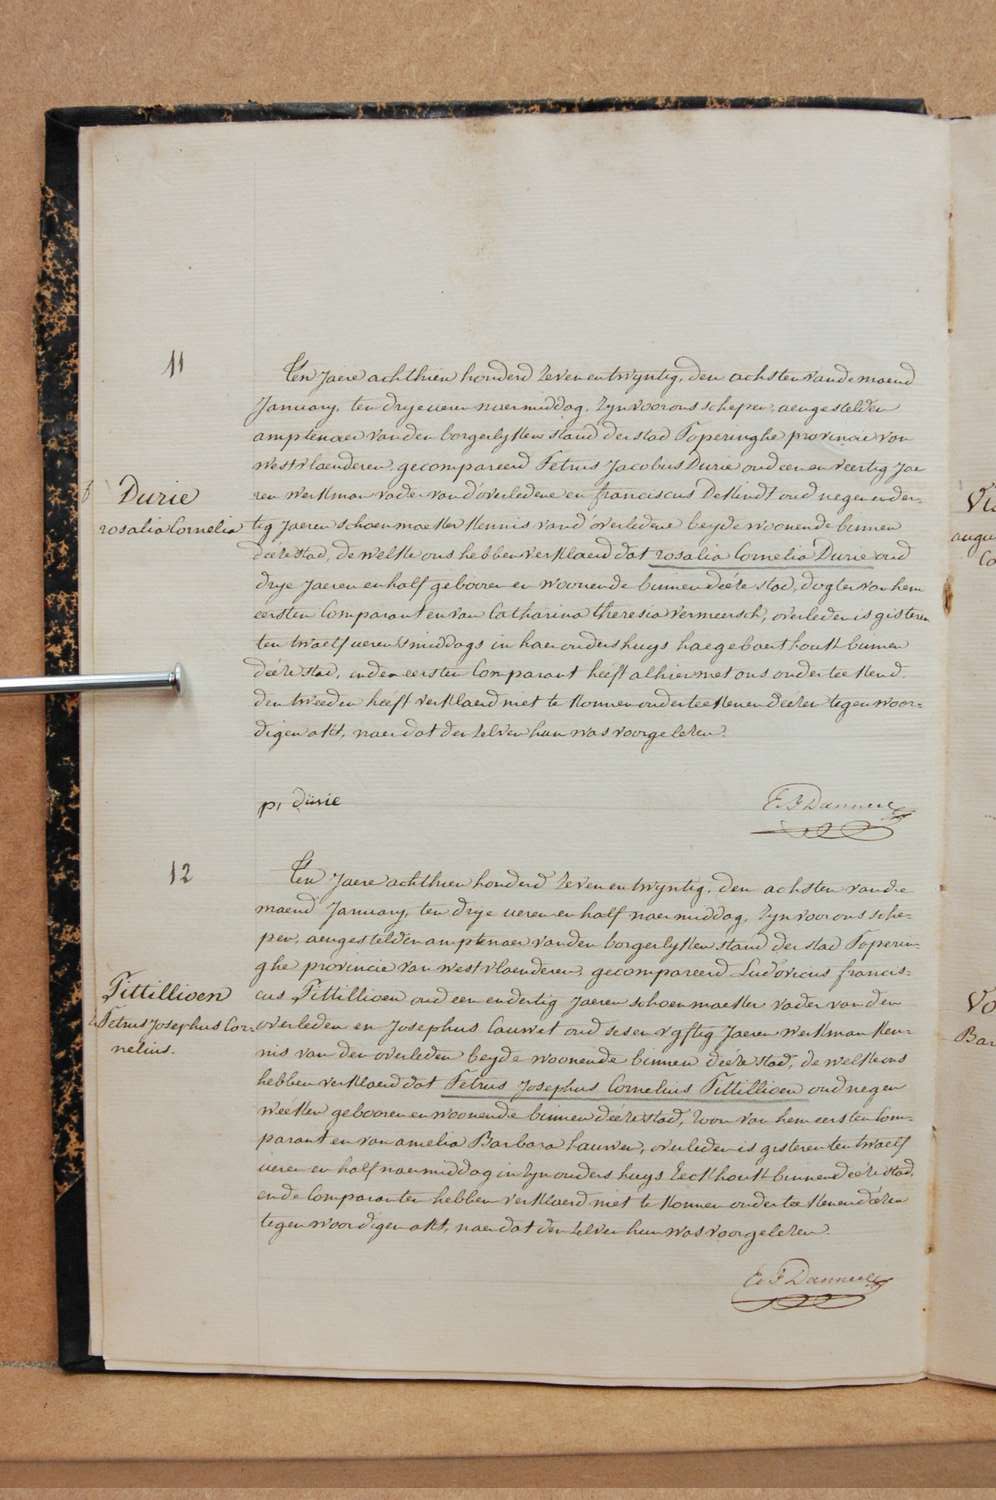 11
Durie
rosalia Cornelia
Ten Jaere achthien honderd zeven en twyntig, den achsten van de maend
January, ten drye ueren naermiddag, zyn voor ons schepen, aengestelden
amptenaer van den borgerlyken stand der stad Poperinghe provincie van
westvlaenderen, gecompareerd Petrus Jacobus Durie oud een en veertig Jae
ren werkman vader vand'overledene en franciscus DeKindt oud negen en der-
tig Jaeren schoenmaeker kennis vand'overledene beyde woonende binnen
deéze stad, de welke ons hebben verklaerd dat rosalia Cornelia Durie oud
drye Jaeren en half gebooren en woonende binnen deéze stad, dogter van hem
eersten Comparant en van Catharina theresia vermeersch, overleden is gisteren
ten twaelf ueren smiddags in haer ouders huys haegebaert houk binnen
deéze stad, ende eersten Comparant heeft alhier met ons onderteekend.
den tweeden heeft verklaerd niet te konnen onderteekenen deézen tegenwoor-
digen akt, naer dat der zelven hun was voorgelezen.
pr durie
E. F. Danneel
12
Pittillioen
Petrus Josephus Cor-
nelius.
Ten Jaere achthien honderd zeven en twyntig, den achsten van de
maend January, ten drye ueren en half naermiddag, zyn voor ons sche-
pen, aengestelden amptenaer van den borgerlyken stand der stad Poperin-
ghe provincie van westvlaenderen, gecompareerd Ludovicus francis-
cus Pittillioen oud een en dertig Jaeren schoenmaeker vader van den
overleden en Josephus Cauwet oud ses en vyftig Jaeren werkman ken-
nis van den overleden beyde woonende binnen deéze stad, de welke ons
hebben verklaerd dat Petrus Josephus Cornelius Pittillioen oud negen
weéken gebooren en woonende binnen deéze stad, zoon van hem eersten Com-
parant en van amelia Barbara Lauwers, overleden is gisteren ten twaelf
ueren en half naermiddag in zyn ouders huys Eeckhoutt binnen deéze stad,
en de Comparanten hebben verklaerd niet te konnen onderteekenen deézen
tegenwoordigen akt, naer dat den zelven hun was voorgelezen.
E. F. Danneel
augu
Bar